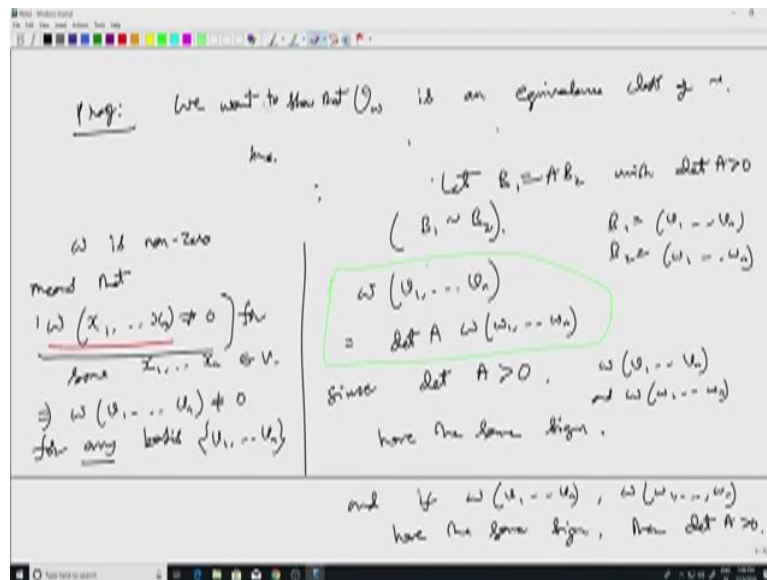 Proof: We want to show that O_ω is an equivalence class of ~.
Let B₁ = AB₂ with det A>0
(B₁ ~ B₂). B₁ = (v₁, -- vₙ)
B₂ = (w₁, -- wₙ)
ω is non-zero
means that
ω (x₁, .. xₙ) ≠ 0 for
some x₁, .. xₙ ∈ V.
⇒ ω (v₁ -- vₙ) ≠ 0
for any basis {v₁, -- vₙ}
ω (v₁, ... vₙ)
= det A ω(w₁, -- wₙ)
since det A > 0, ω (v₁, -- vₙ)
and ω (w₁, -- wₙ)
have the same sign.
and if ω (v₁, -- vₙ), ω (w₁, --, wₙ)
have the same sign, then det A >0.